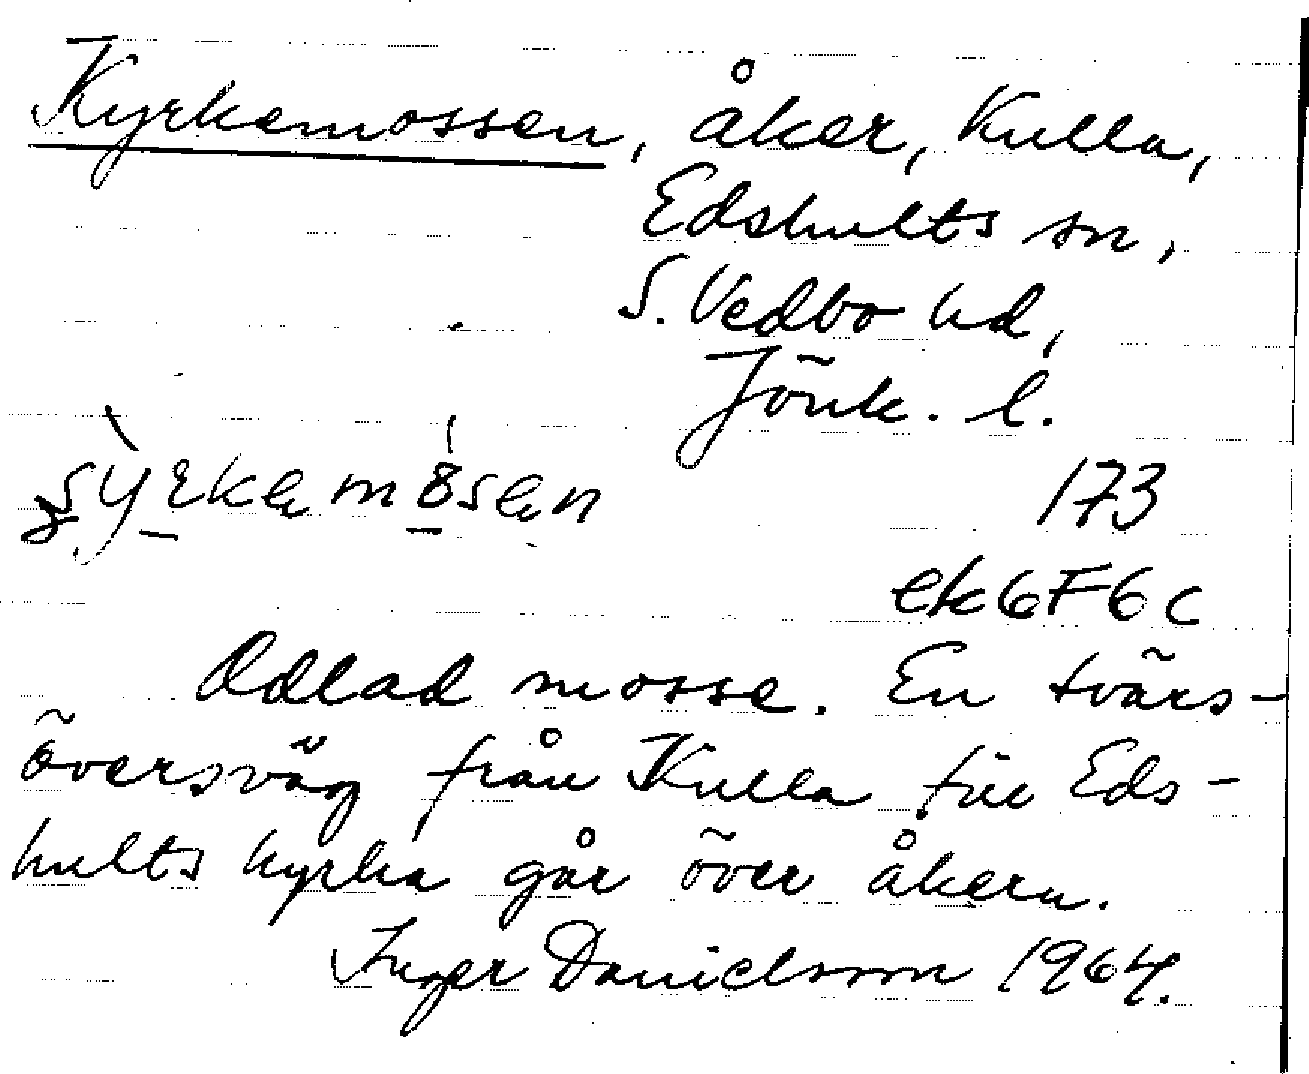 Kyrkemossen, åker, Kulla,
Edshults sn,
S. Vedbo hd,
Jönk. l.
173
ek 6F6c
Odlad mosse. En tvärs-
översväg från Kulla till Eds-
hults kyrka går över åkern.
Inger Danielsson 1964.